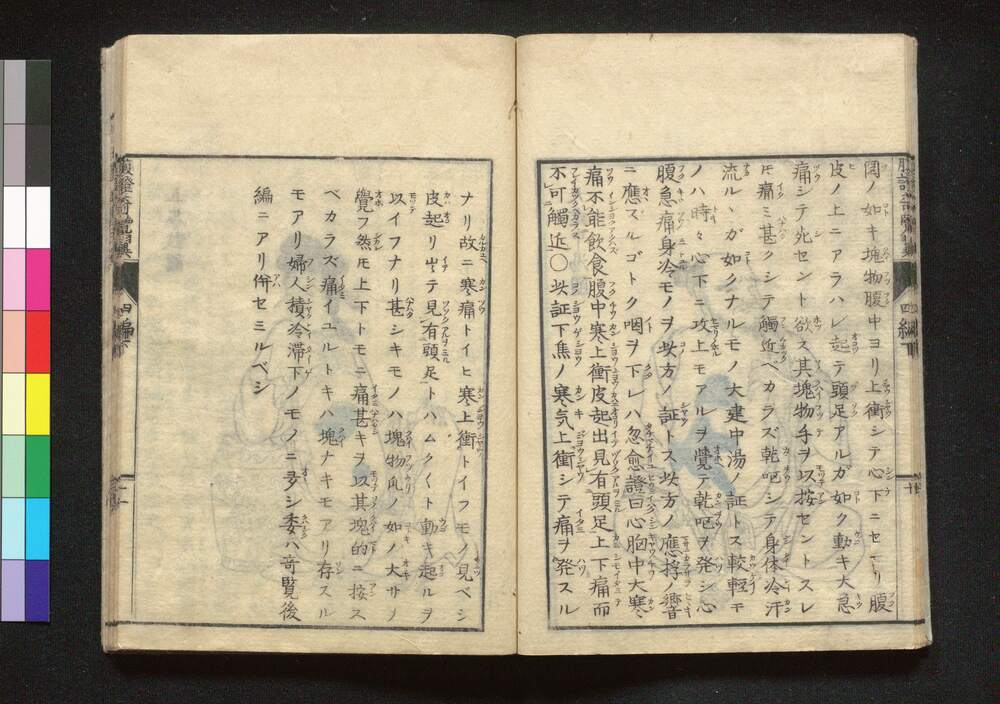 図ノ如キ塊物腹中ヨリ上衝シテ心下ニセマリ腹
皮ノ上ニアラハレ起テ頭足アルガ如ク動キ大急
痛シテ死セント欲ス其塊物手ヲ以按セントスレ
𪜈痛ミ甚クシテ觸近ベカラズ乾呕シテ身体冷汗
流ルヽガ如クナルモノ大建中湯ノ証トス較軽モ
ノハ時々心下ニ攻上モアルヲ覺テ乾呕ヲ発シ心
腹急痛身冷モノヲ此方ノ証トス此方ノ應桴ノ響
ニ應スルゴトク咽ヲ下レハ忽愈證曰心胸中大寒
痛不能飲食腹中寒上衝皮起出見有頭足上下痛而
不可觸近〇此証下焦ノ寒気上衝シテ痛ヲ発スル
四編
ナリ故ニ寒痛トイヒ寒上衝トイフモノ見ベシ
皮起リ出テ見有頭足トハムク〱ト動キ起ルヲ
以イフナリ甚シキモノハ塊物瓜ノ如ノ大サノ
覺フ然𪜈上下トモニ痛甚キヲ以其塊的ニ按ス
ベカラズ痛イユルトキハ塊ナキモアリ存スル
モアリ婦人積冷滞下ノモノニ多シ委ハ竒覧後
編ニアリ併セミルベシ
四編